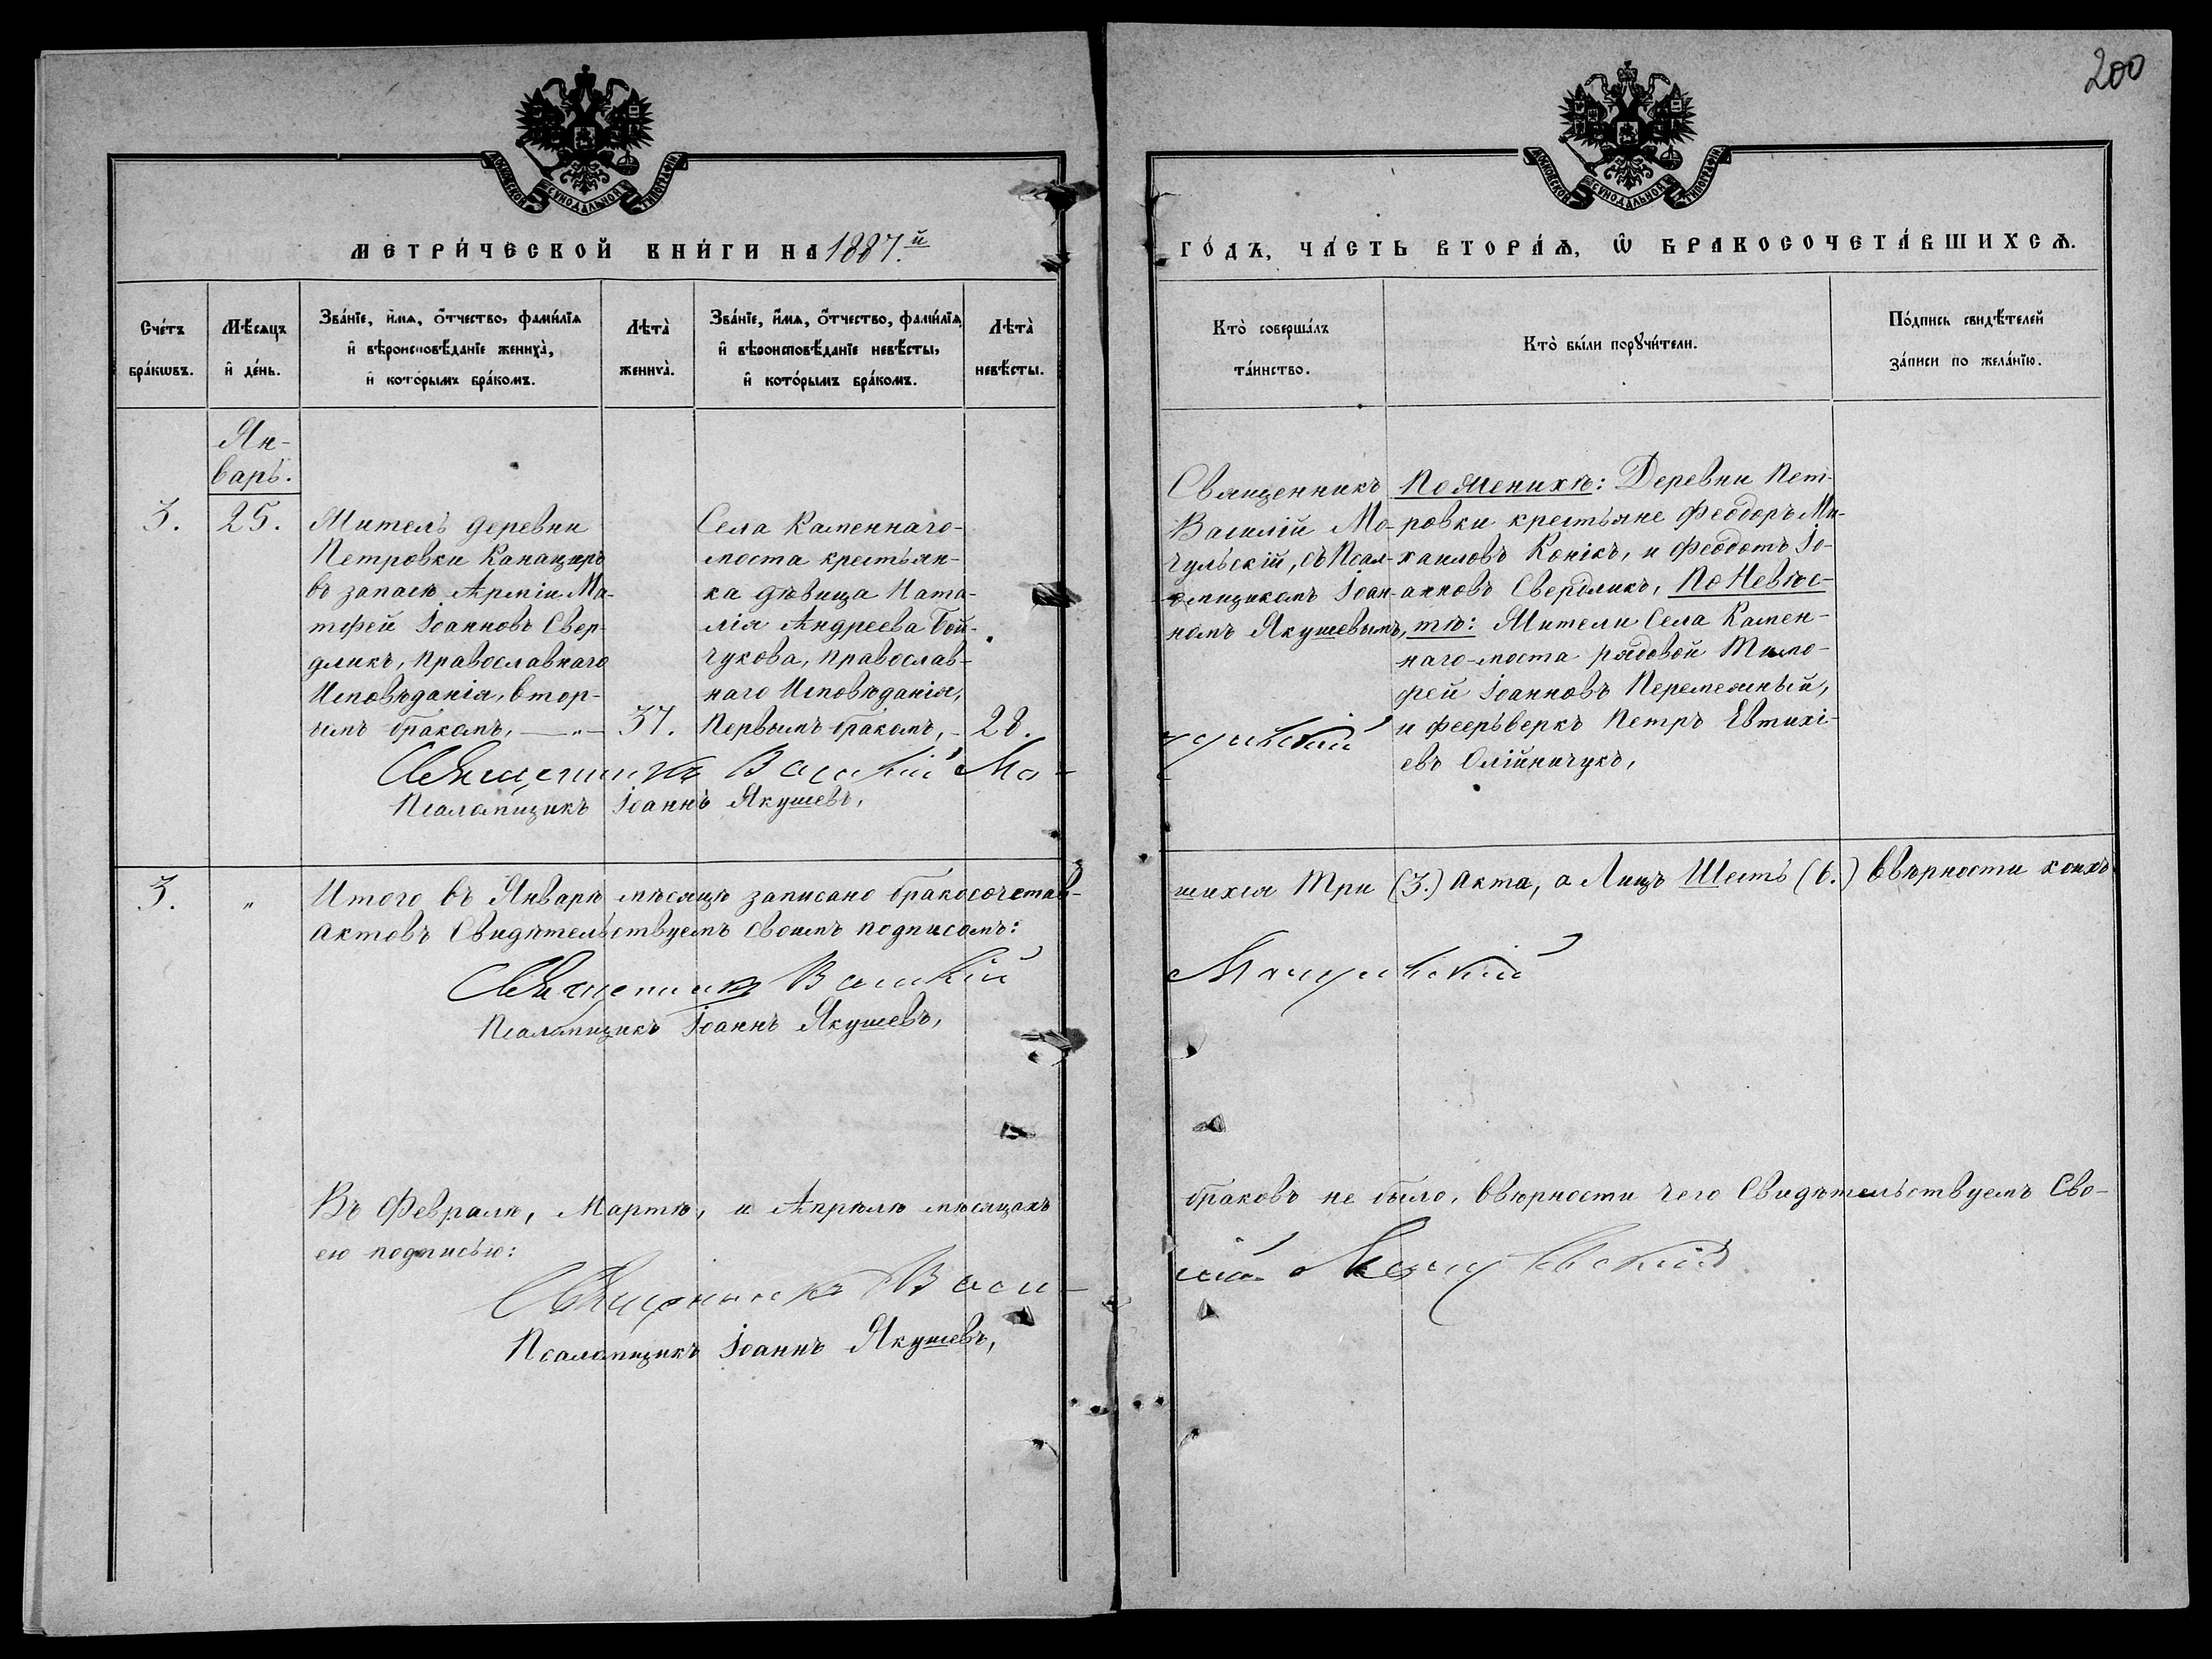 200
МОСКОВСКОЙ СѴНОДАЛЬНОЙ ТИПОГРАФІИ
МОСКОВСКОЙ СѴНОДАЛЬНОЙ ТИПОГРАФІИ
МЕТРИ́ЧЕСКОЙ КНИ́ГИ НА 1887.й
ГО́ДЪ, ЧА́СТЬ ВТОРА́Ѧ, Ѡ҆ БРАКОСОЧЕТА́ВШИХСѦ.
Сче́тъ
бра́кѡвъ.
Мѣ́сѧцъ
и҆ де́нь.
Зва́нїе, и҆́мѧ, о҆́тчество, фами́лїѧ
и҆ вѣроисповѣ́данїе жениха̀,
и҆ кото́рымъ бра́комъ.
Лѣта̀
жениха̀.
Зва́нїе, и҆́мѧ, о҆́тчество, фами́лїѧ
и҆ вѣроисповѣ́данїе невѣ́сты,
и҆ кото́рымъ бра́комъ.
Лѣта̀
невѣ́сты.
Кто̀ соверша́лъ
та́инство.
Кто̀ бы́ли порꙋчи́тели.
По́дпись свидѣ́телей
за́писи по жела́нїю.
Ян-
варь.
3.
25.
Житель деревни
Петровки Канациръ
въ запасѣ Арміи Ма-
тѳей Іоанновъ Свер-
дликъ, Православнаго
Исповѣданія, втор-
ымъ бракомъ, —„—
37.
Села Каменнаго-
моста крестьян-
ка дѣвица Ната-
лія Андреева Бой-
чукова, Православ-
наго Исповѣданія,
Первымъ бракомъ, -
28.
Священникъ
Василій Мо-
чульскій, съ Псал-
омщикомъ Іоан-
номъ Якушевымъ,
По Женихѣ: Деревни Пет-
ровки крестьяне Ѳеодоръ Ми-
хаиловъ Конікъ, и Ѳеодотъ Іо-
анновъ Свердликъ, По Невѣс-
тѣ: Жители Села Камен-
наго-моста рядовой Тимо-
фей Іоанновъ Перемежный,
и фееръверкъ Петръ Евтихі-
евъ Олійничукъ,
Священникъ Василій Мо-
чульскій
Псаломщикъ Іоаннъ Якушевъ,
3.
„
Итого въ Январѣ мѣсяцѣ записано бракосочетав-
шихся Три (3.) Акта, а Лицъ Шесть (6.) Ввѣрности коихъ
Актовъ Свидѣтельствуемъ своимъ подписомъ:
Священникъ Василій
Мочульскій
Псаломщикъ Іоаннъ Якушевъ,
Въ Февралѣ, Мартѣ, и Апрѣлѣ мѣсяцахъ
браковъ не было, Ввѣрности чего Свидѣтельствуемъ Сво-
ею подписью:
Священникъ Васи-
лій Мочульскій
Псаломщикъ Іоаннъ Якушевъ,